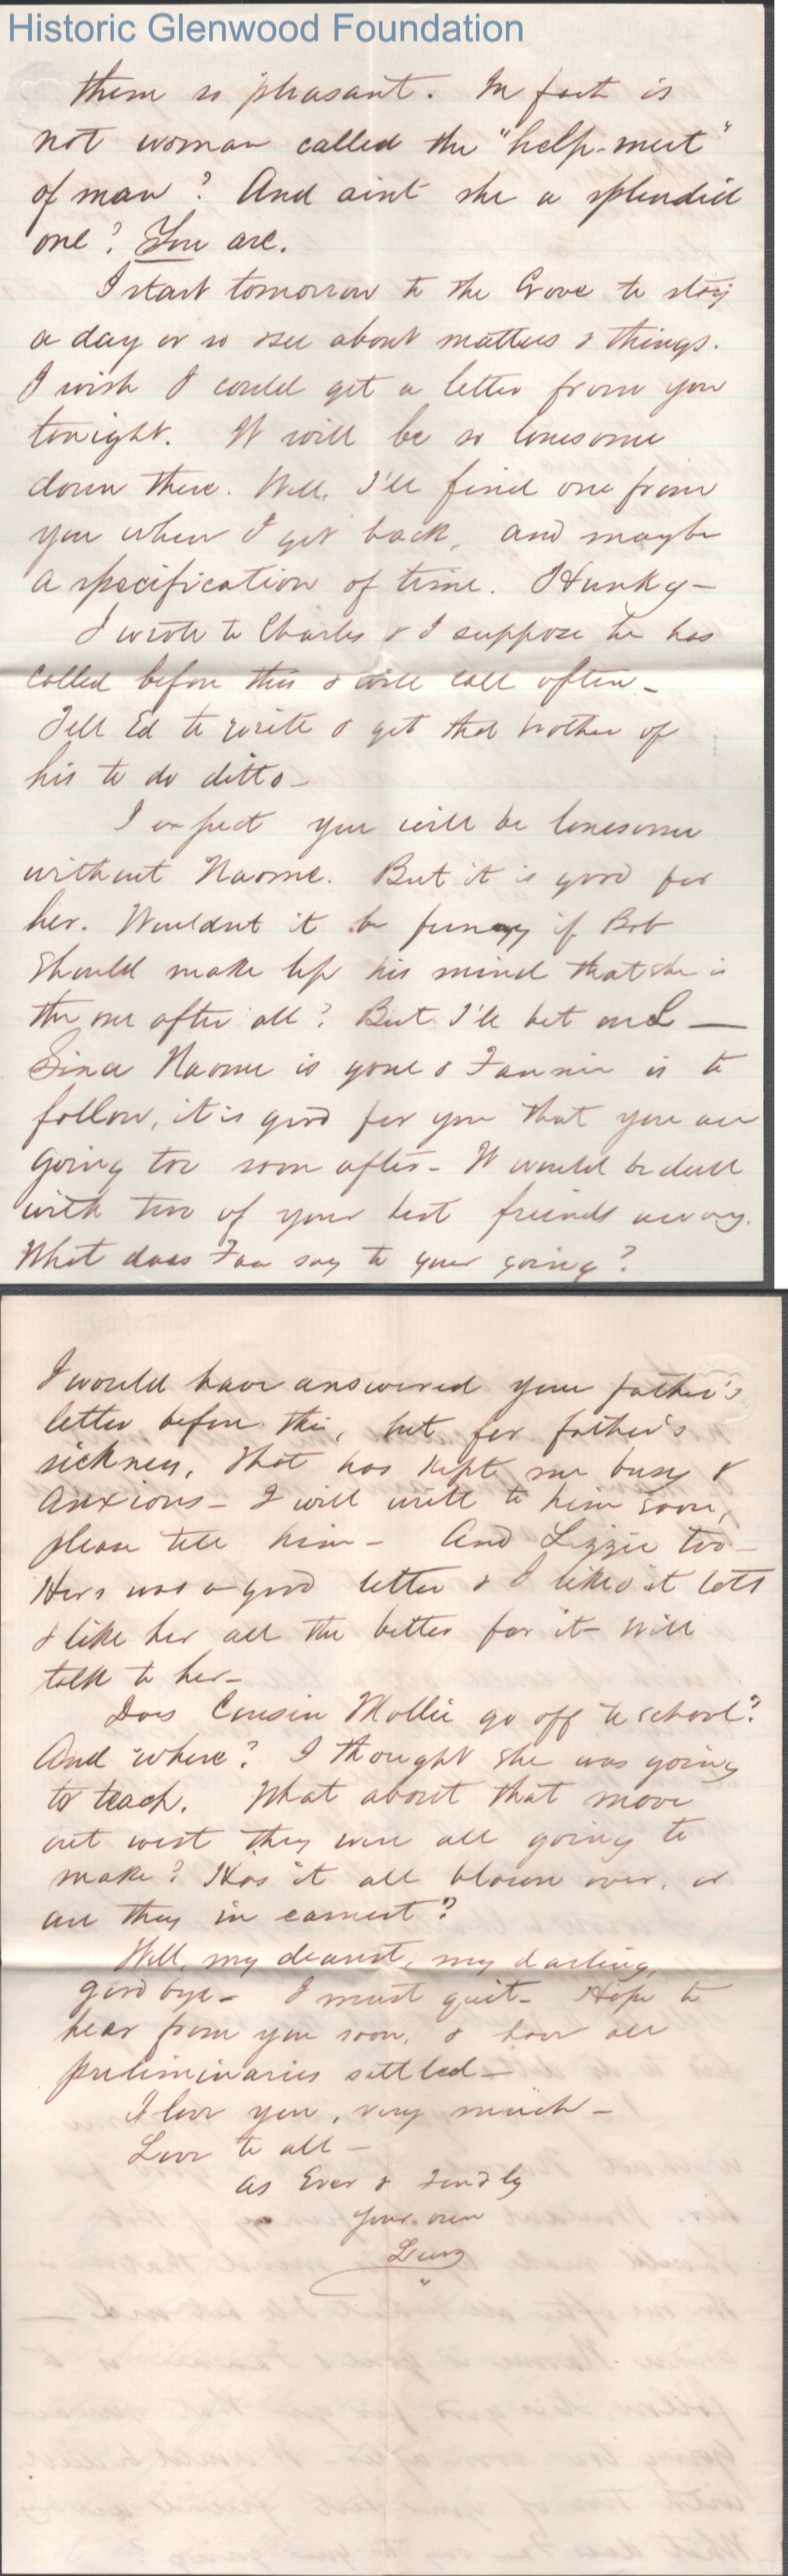 Historic Glenwood Foundation
them so pleasant. In fact is
not woman called the "help-meet"
of man? And aint she a splendid
one? You are.
I start tomorrow to the Grove to stay
a day or so & see about matters & things.
I wish I could get a letter from you
tonight. It will be so lonesome
down there. Well, I'll find one from
you when I get back, and maybe
a specification of time. Hunky-
I wrote to Charles & I suppose he has
called before this & will call often-
Tell Ed to write & get that brother of
his to do ditto-
I expect you will be lonesome
without Naomi. But it is good for
her. Wouldnt it be funny if Bob
should make up his mind that she is
the one after all? But I'll bet
Since Naomi is gone & Fannie is to
follow, it is good for you that you are
going too soon after- It would be dull
with two of your best friends away.
What does Fan say to your going?
I would have answered your father's
letter before this, but for father's
sickness. That has kept me busy &
anxious- I will write to him soon,
please tell him- And Lizzie too-
Hers was a good letter & I liked it lots
& like her all the better for it- Will
talk to her-
Does Cousin Mollie go off to school?
And where? I thought she was going
to teach. What about that move
out west they were all going to
make? Has it all blown over, or
are they in earnest?
Well, my dearest, my darling,
good bye- I must quit- Hope to
hear from you soon, & have all
preliminaries settled-
I love you, very much-
Love to all-
As Ever & fondly
Your own